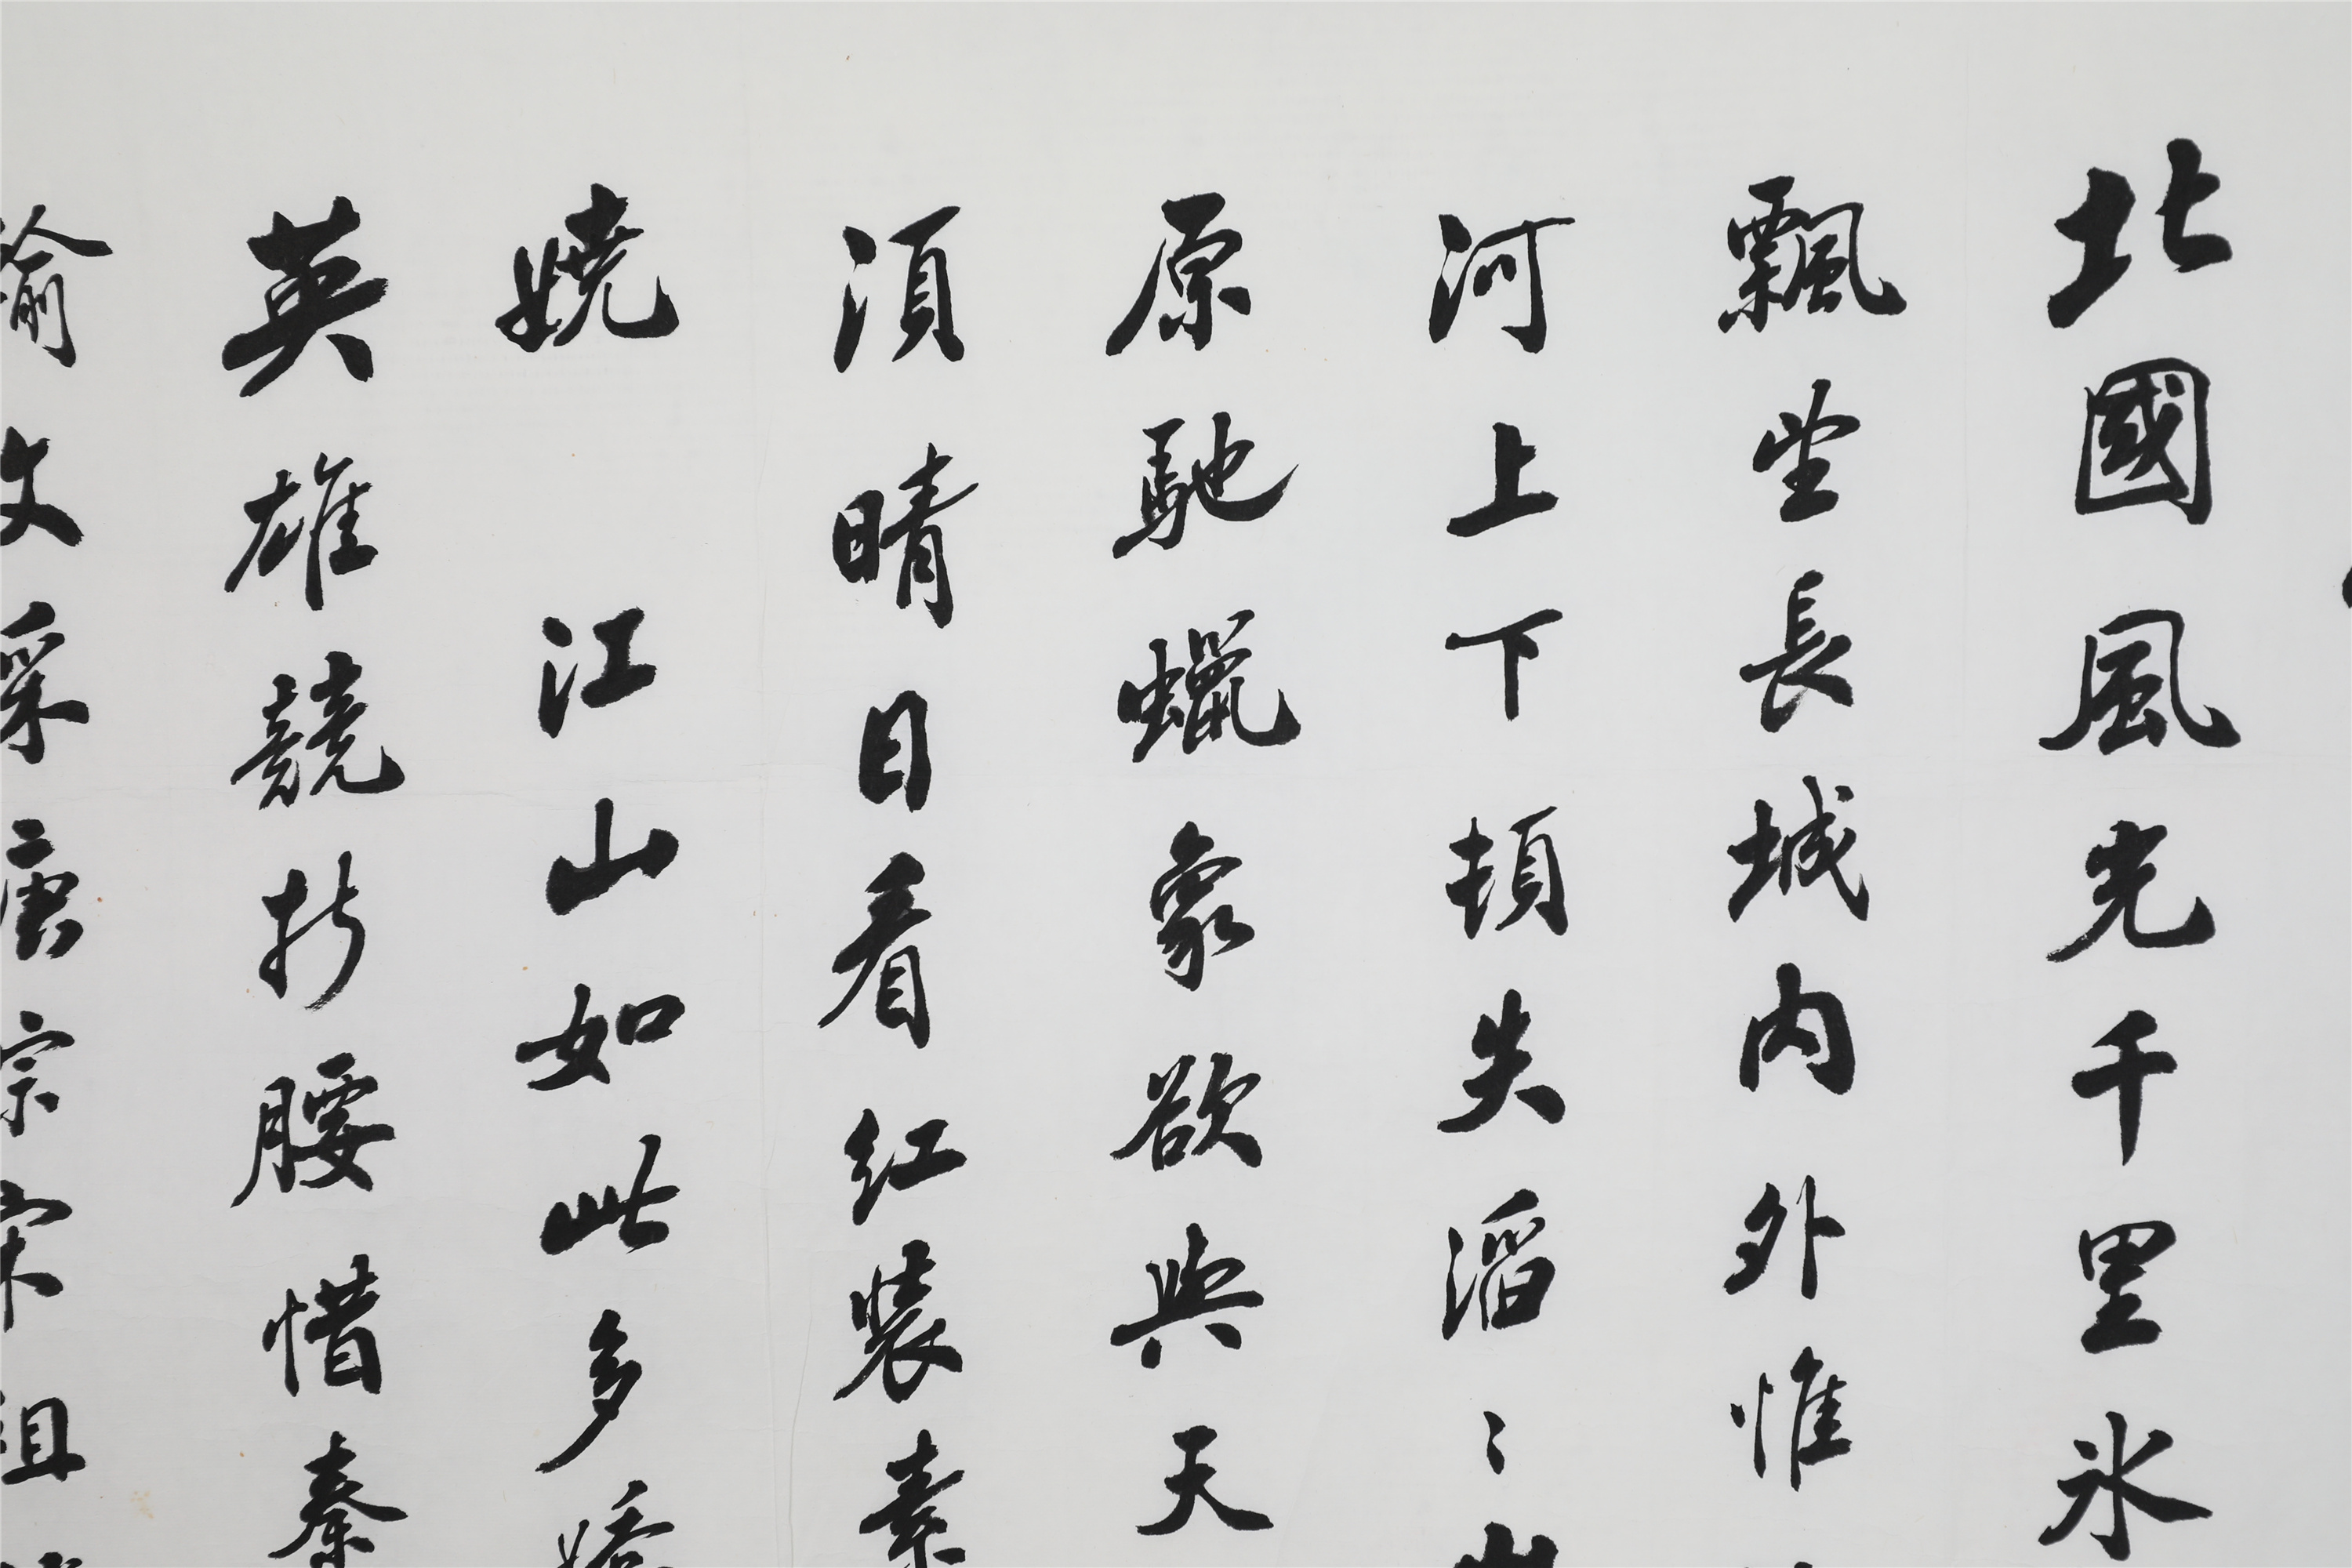 北國風光千里氷
飄望長城内外惟
河上下頓失滔〻山
原馳蠟象欲與天
須晴日看红裝素
嬈 江山如此多嬌
英雄競折腰惜秦
輸文采唐宗宋祖